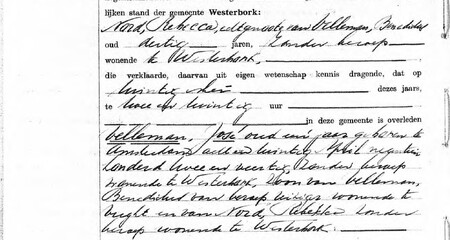 lijken stand der gemeente Westerbork:
Nord, Rebecca, echtgenoote van Velleman, Benedictus
oud dertig jaren, zonder beroep
wonende te Westerbork,
die verklaarde, daarvan uit eigen wetenschap kennis dragende, dat op
twintig dezes jaars,
te twee en twintig uur
in deze gemeente is overleden
Velleman, oud een jaar geboren te
Amsterdam acht en twintig April negentien
honderd twee en veertig, zonder beroep
wonende te Westerbork, zoon van Velleman,
Benedictus van beroep wonende te
Vught en van Nord, Rebecca zonder
beroep wonende te Westerbork.